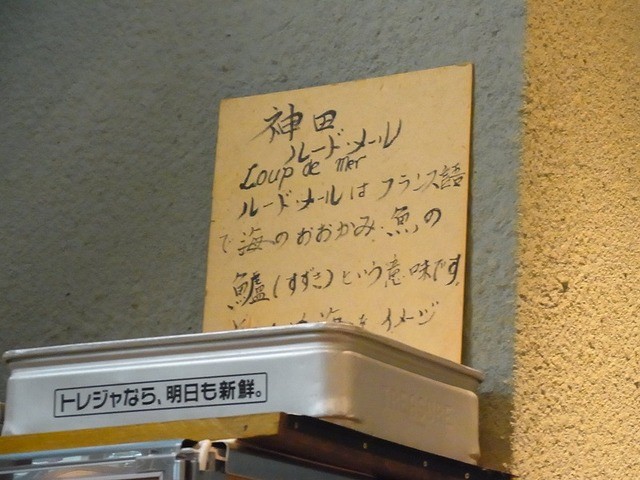 神田
ルード・メール
Loup de mer
ルード・メールは フランス語
で 海のおおかみ・魚の
鱸(すずき)という意味です。
イメージ
トレジャなら、明日も新鮮。